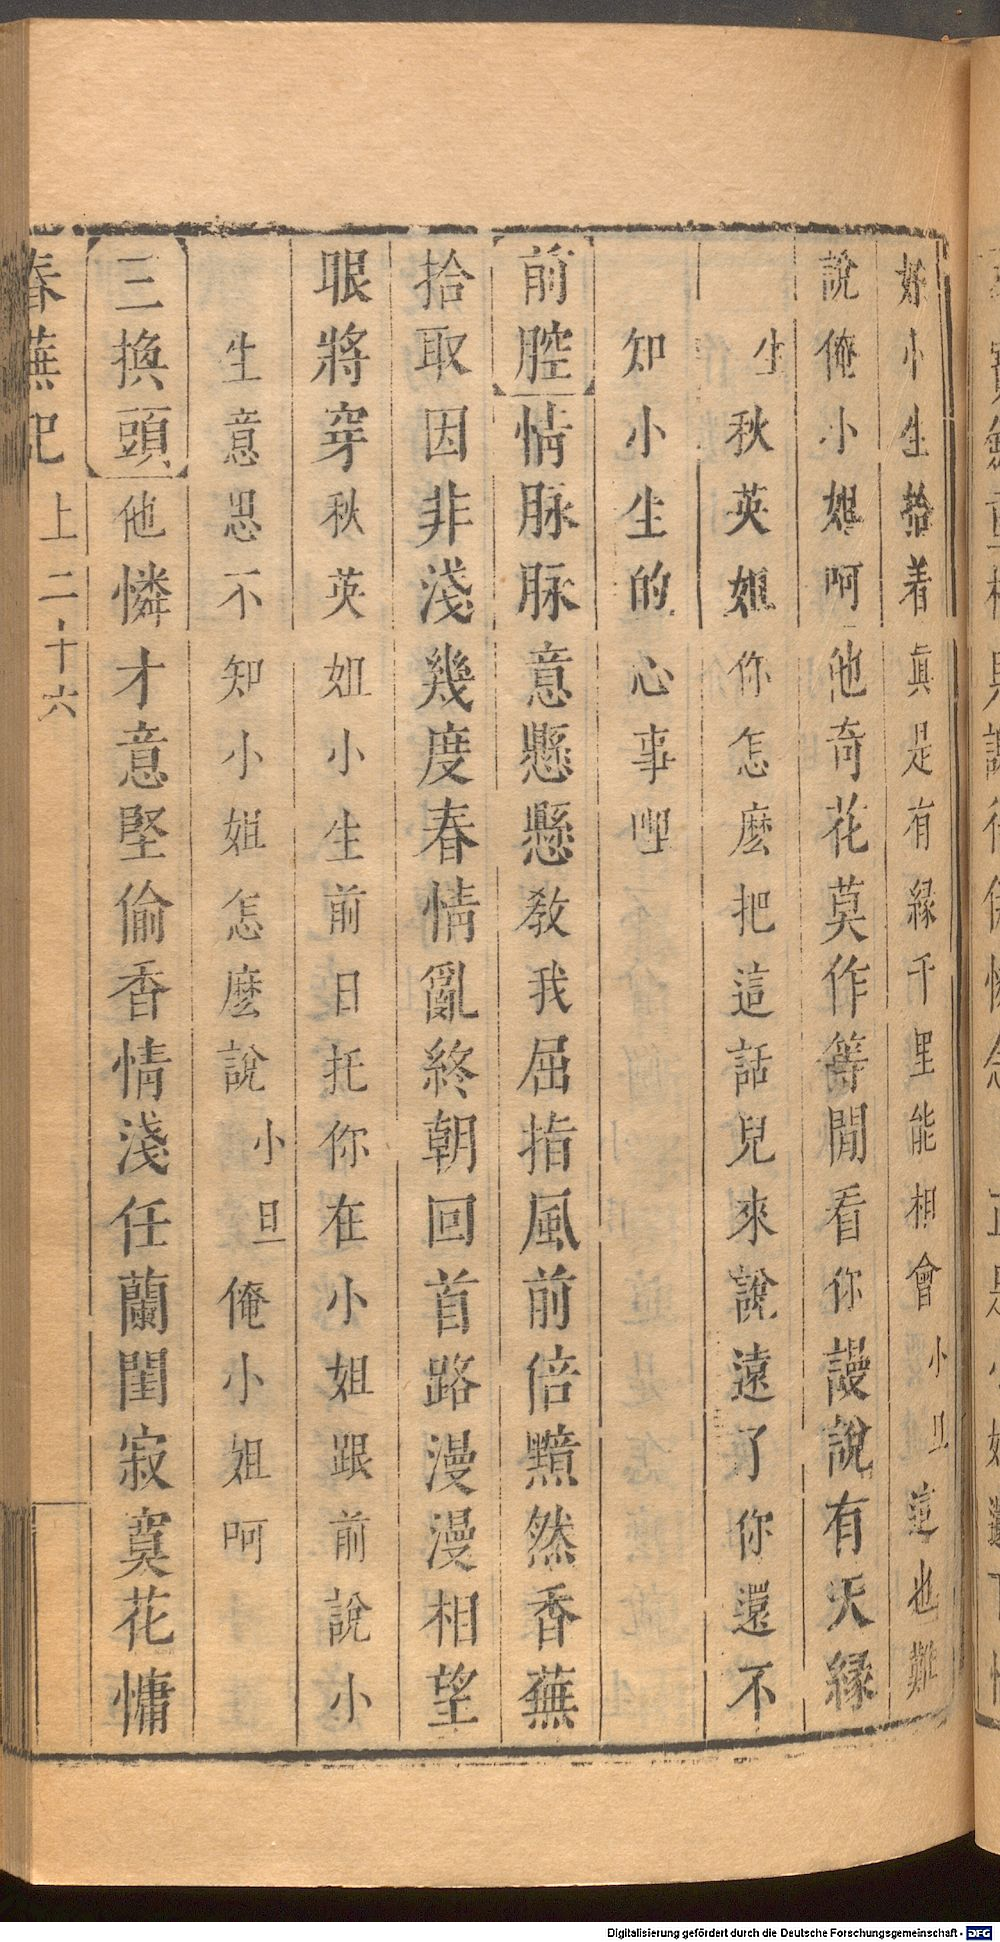 好小生拾着真是有縁千里能相會小旦這也難
說俺小姐呵他奇花莫作等閒看你謾說有天縁
生秋英姐你怎麽把這話兒來說遠了你還不
知小生的心事哩
前腔情脉脉意懸懸教我屈指風前倍黯然香蕪
拾取因非淺幾度春情亂終朝回首路漫漫相望
眼將穿秋英姐小生前日托你在小姐跟前說小
生意思不知小姐怎麽說小旦俺小姐呵
三換頭他憐才意堅偷香情淺任蘭閨寂寞花慵
春蕪記 上二 十六
Digitalisierung gefördert durch die Deutsche Forschungsgemeinschaft - DFG